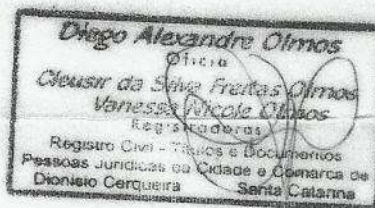 Diego Alexandre Olmos
Oficial
Cleusir da Silva Freitas Olmos
Vanessa Nicole Olmos
Registradoras
Registro Civil - Títulos e Documentos
Pessoas Jurídicas da Cidade e Comarca de
Dionísio Cerqueira Santa Catarina